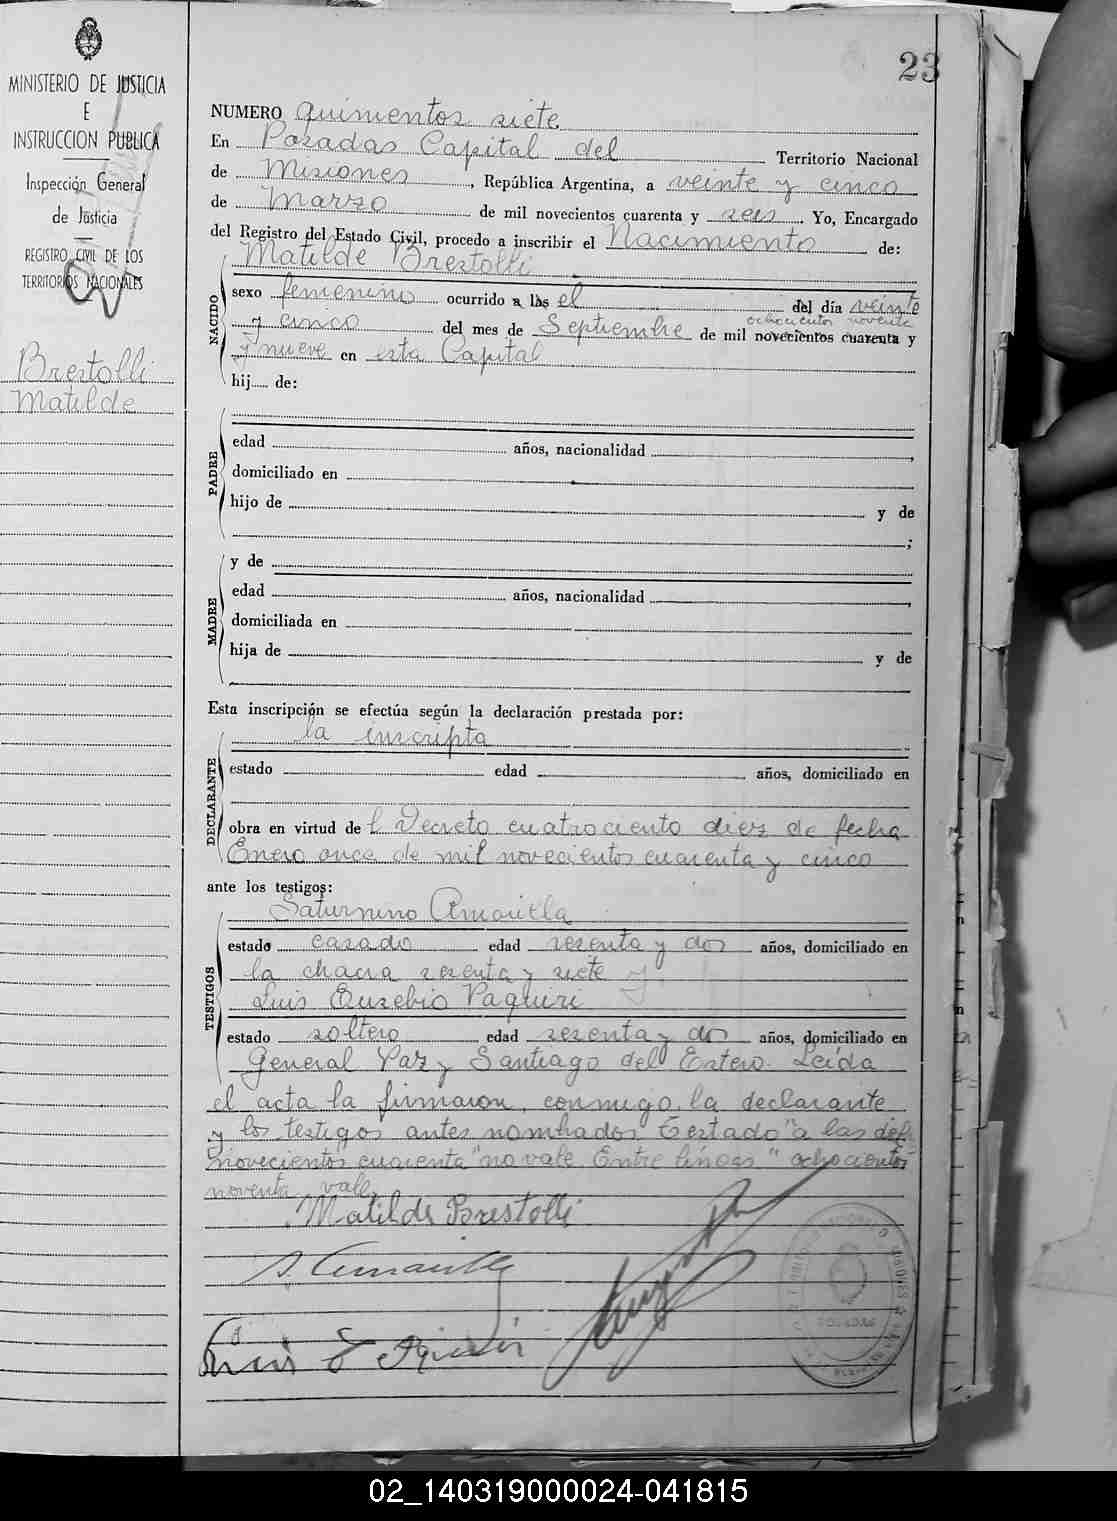 23
MINISTERIO DE JUSTICIA
E
INSTRUCCION PUBLICA
Inspección General
de Justicia
REGISTRO CIVIL DE LOS
TERRITORIOS NACIONALES
Brestolli
Matilde
NUMERO quinientos siete
En Posadas Capital del Territorio Nacional
de Misiones, República Argentina, a veinte y cinco
de Marzo de mil novecientos cuarenta y seis Yo, Encargado
del Registro del Estado Civil, procedo a inscribir el Nacimiento de:
Matilde Brestolli
NACIDO
sexo femenino ocurrido a las el del día veinte
y cinco del mes de Septiembre de mil novecientos cuarenta y
ochocientos noventa
y nueve en esta Capital
hij de:
PADRE
edad años, nacionalidad ,
domiciliado en
hijo de y de
;
MADRE
y de
edad años, nacionalidad ,
domiciliada en
hija de y de
Esta inscripción se efectúa según la declaración prestada por:
DECLARANTE
la inscripta
estado edad años, domiciliado en
obra en virtud de l Decreto cuatrociento diez de fecha
Enero once de mil novecientos cuarenta y cinco
ante los testigos:
TESTIGOS
Saturnino Amarilla
estado casado edad sesenta y dos años, domiciliado en
la chacra sesenta y siete y
Luis Eusebio Vaquiri
estado soltero edad sesenta y dos años, domiciliado en
General Paz y Santiago del Estero. Leída
el acta la firmaron conmigo, la declarante
y los testigos antes nombrados. Testado "a las del,
novecientos cuarenta" no vale. Entre líneas "ochocientos
noventa vale.
Matilde Brestolli
S. Amarilla
POSADAS
02_140319000024-041815